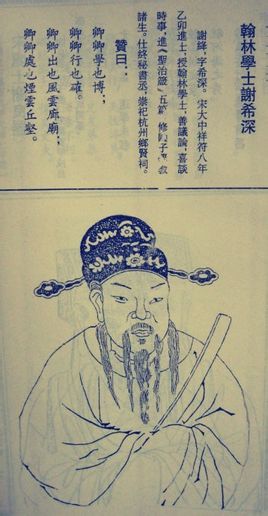 翰林學士謝希深
謝絳,字希深。宋大中祥符八年
乙卯進士,授翰林學士,善議論,喜談
時事,進《聖治箴》五篇 修 子 教
諸生。仕終秘書丞,崇祀杭州鄉賢祠。
贊曰:
卿卿學也博;
卿卿行也確。
卿卿出也風雲廊廟;
卿卿處也煙雲丘壑。